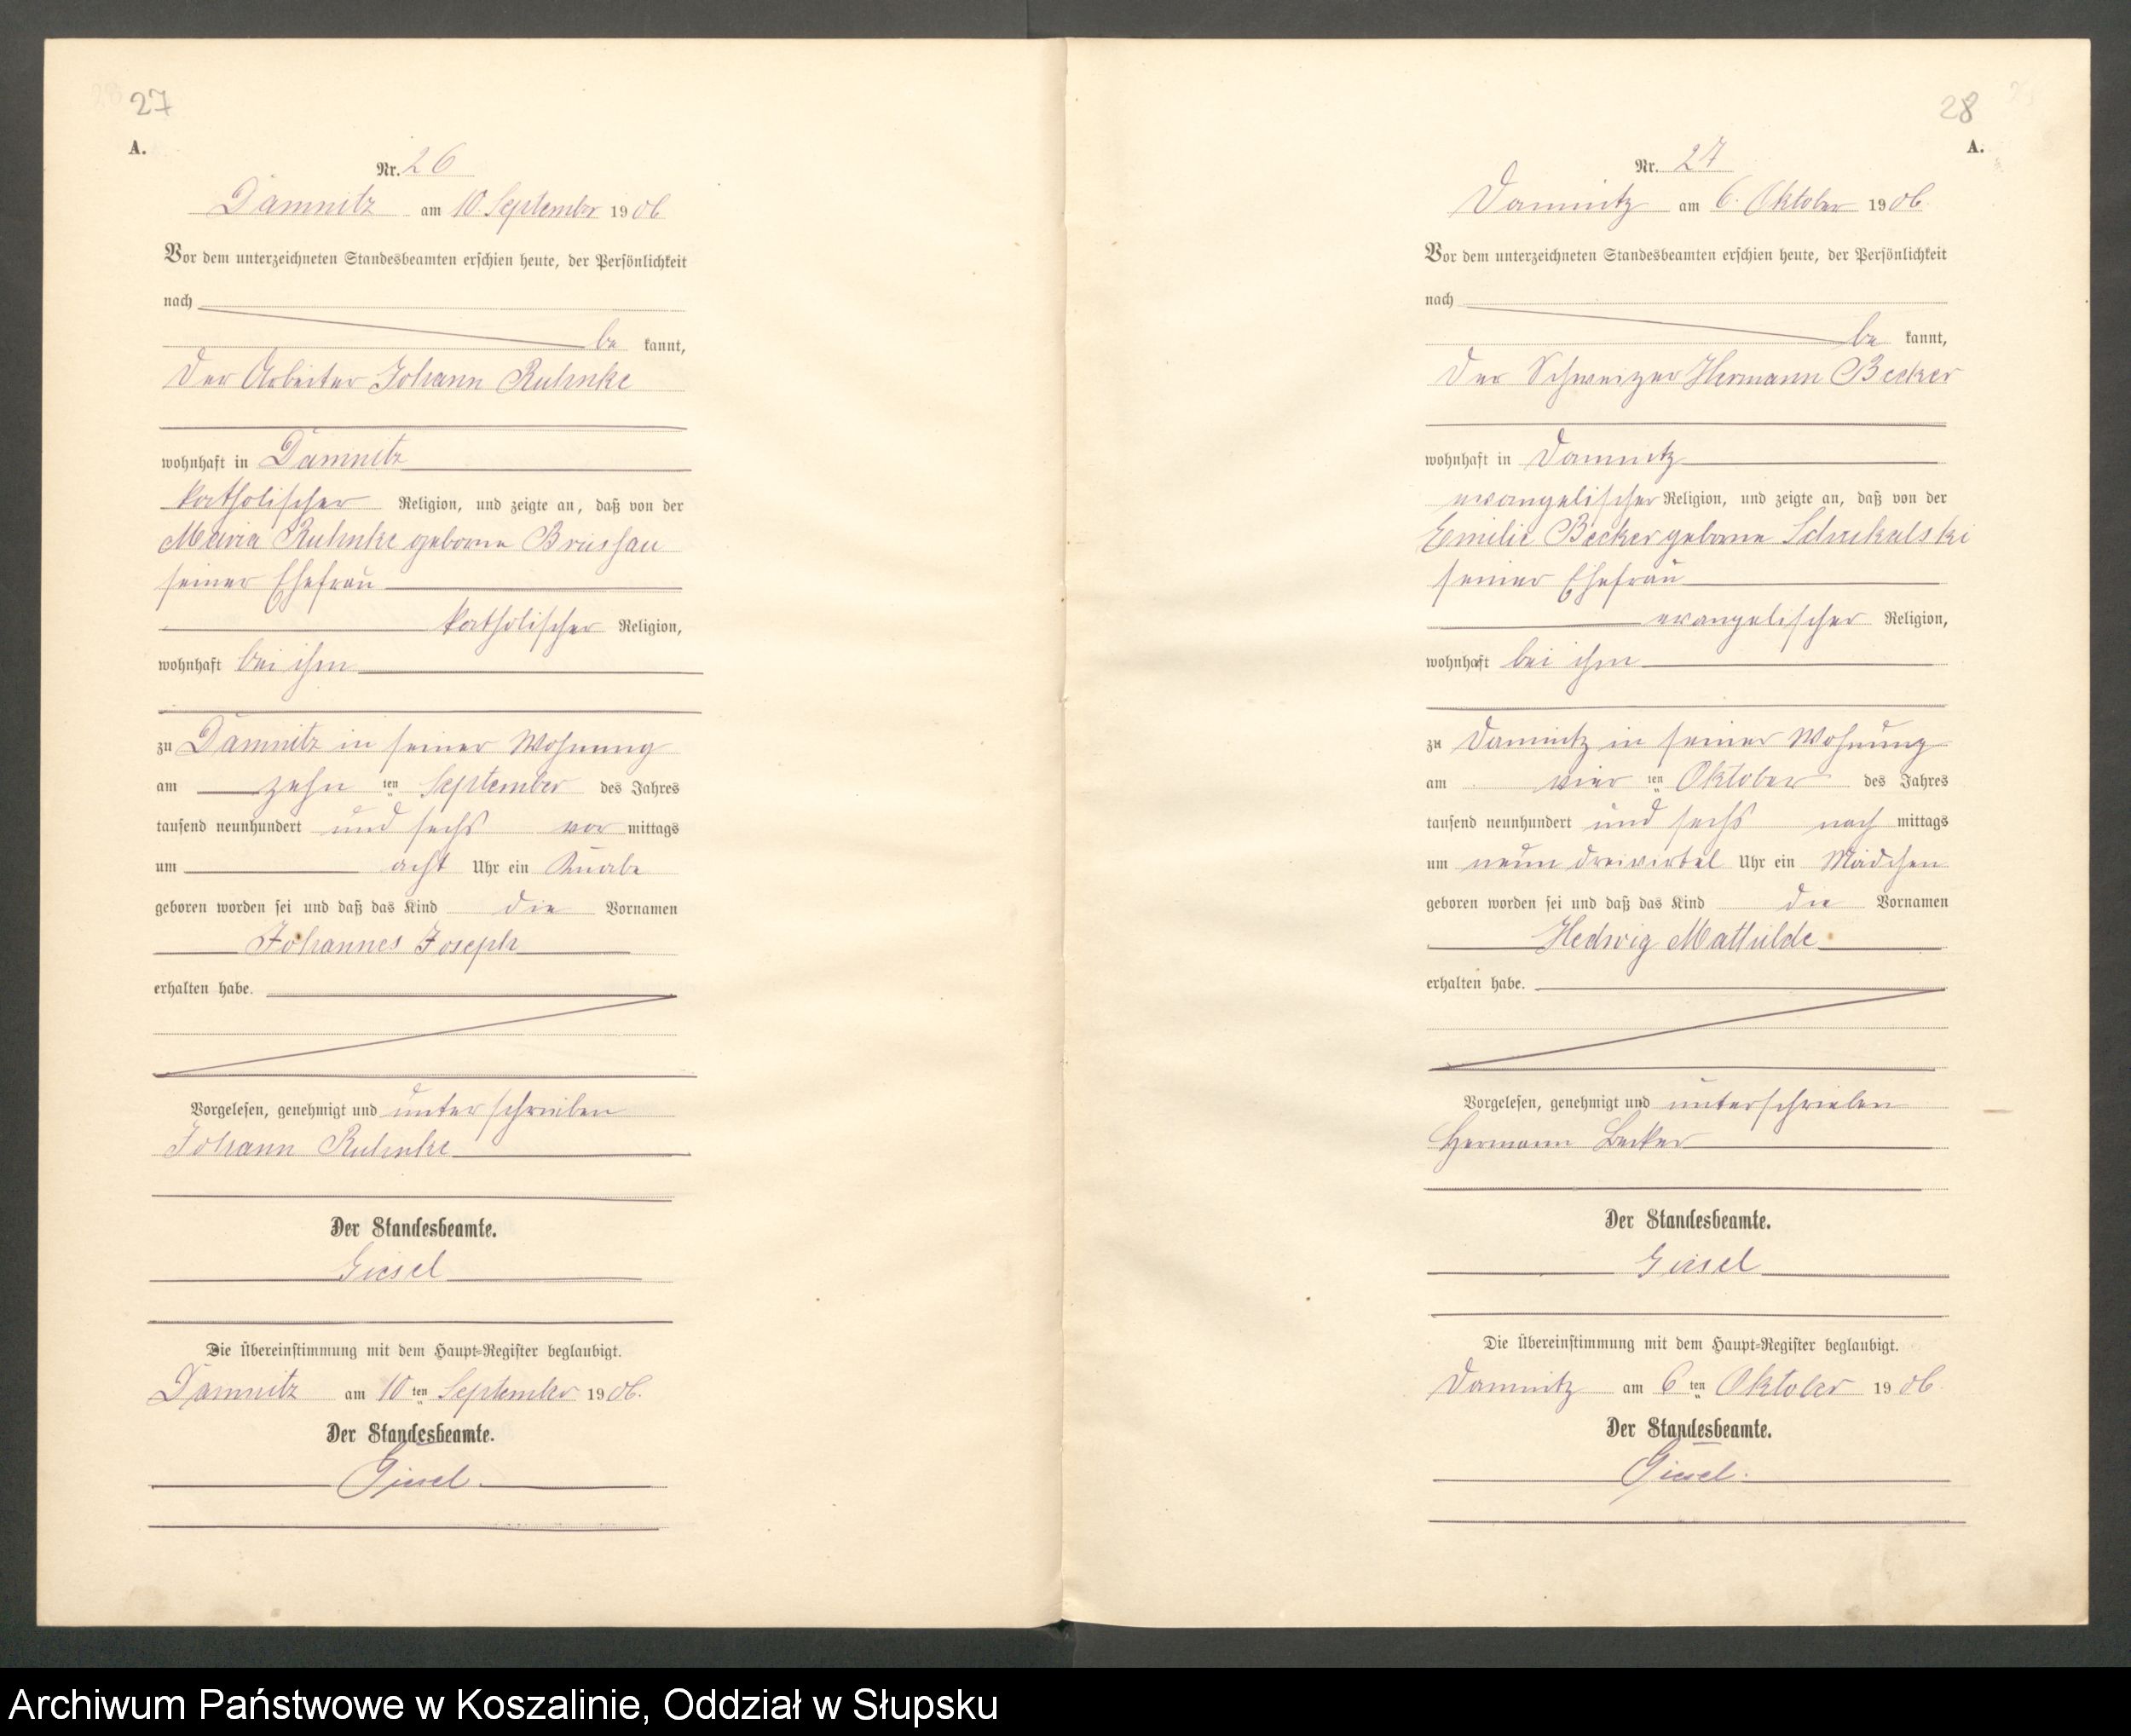 27
A.
Nr. 26
Damnitz am 10. September 1906
Vor dem unterzeichneten Standesbeamten erschien heute, der Persönlichkeit
nach
be kannt,
der Arbeiter Johann Ruhnke
wohnhaft in Damnitz
katholischer Religion, und zeigte an, daß von der
Maria Ruhnke geborne Brüssau
seiner Ehefrau
katholischer Religion,
wohnhaft bei ihm
zu Damnitz in seiner Wohnung
am zehn ten September des Jahres
tausend neunhundert und sechs vor mittags
um acht Uhr ein Knabe
geboren worden sei und daß das Kind die Vornamen
Johannes Joseph
erhalten habe.
Vorgelesen, genehmigt und unterschrieben
Johann Ruhnke
Der Standesbeamte.
Giesel
Die Übereinstimmung mit dem Haupt-Register beglaubigt.
Damnitz am 10 ten September 1906.
Der Standesbeamte.
Giesel.
28
A.
Nr. 27
Damnitz am 6. Oktober 1906.
Vor dem unterzeichneten Standesbeamten erschien heute, der Persönlichkeit
nach
be kannt,
der Schweizer Hermann Becker
wohnhaft in Damnitz
evangelischer Religion, und zeigte an, daß von der
Emilie Becker geborne Schukalski
seiner Ehefrau
evangelischer Religion,
wohnhaft bei ihm
zu Damnitz in seiner Wohnung
am vier ten Oktober des Jahres
tausend neunhundert und sechs nach mittags
um neun dreivirtel Uhr ein Mädchen
geboren worden sei und daß das Kind die Vornamen
Hedwig Mathilde
erhalten habe.
Vorgelesen, genehmigt und unterschrieben
Hermann Becker
Der Standesbeamte.
Giesel
Die Übereinstimmung mit dem Haupt-Register beglaubigt.
Damnitz am 6 ten Oktober 1906
Der Standesbeamte.
Giesel.
Archiwum Państwowe w Koszalinie, Oddział w Słupsku